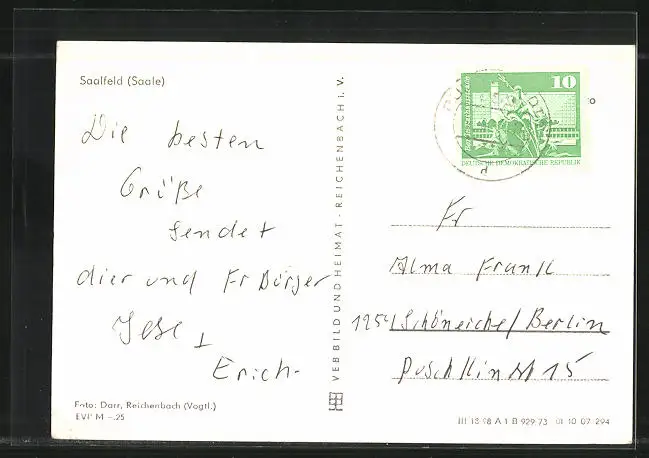 Saalfeld (Saale)
Die besten
Grüße
sendet
dier und Fr Bürger
+
Erich-
Foto: Darr, Reichenbach (Vogtl.)
EVP M -.25
VEB BILD UND HEIMAT · REICHENBACH i. V.
10
DEUTSCHE DEMOKRATISCHE REPUBLIK
Fr
Alma Frank
1254 Schöneiche/Berlin
Puschkin 15
III 18 98 A 1 B 929 73 01 10 07 294